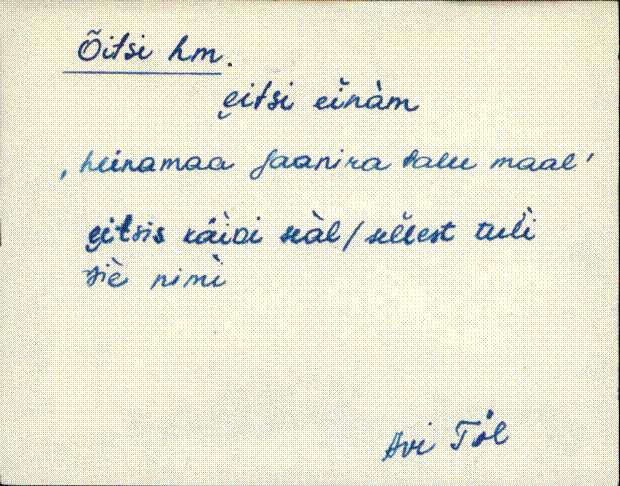 Õitsi hm.
e̮itsi einàm
‚heinamaa Jaanira talu maal’
e̮itsis käidi seàl / sellest tuli
siè nimi
Avi Tõl